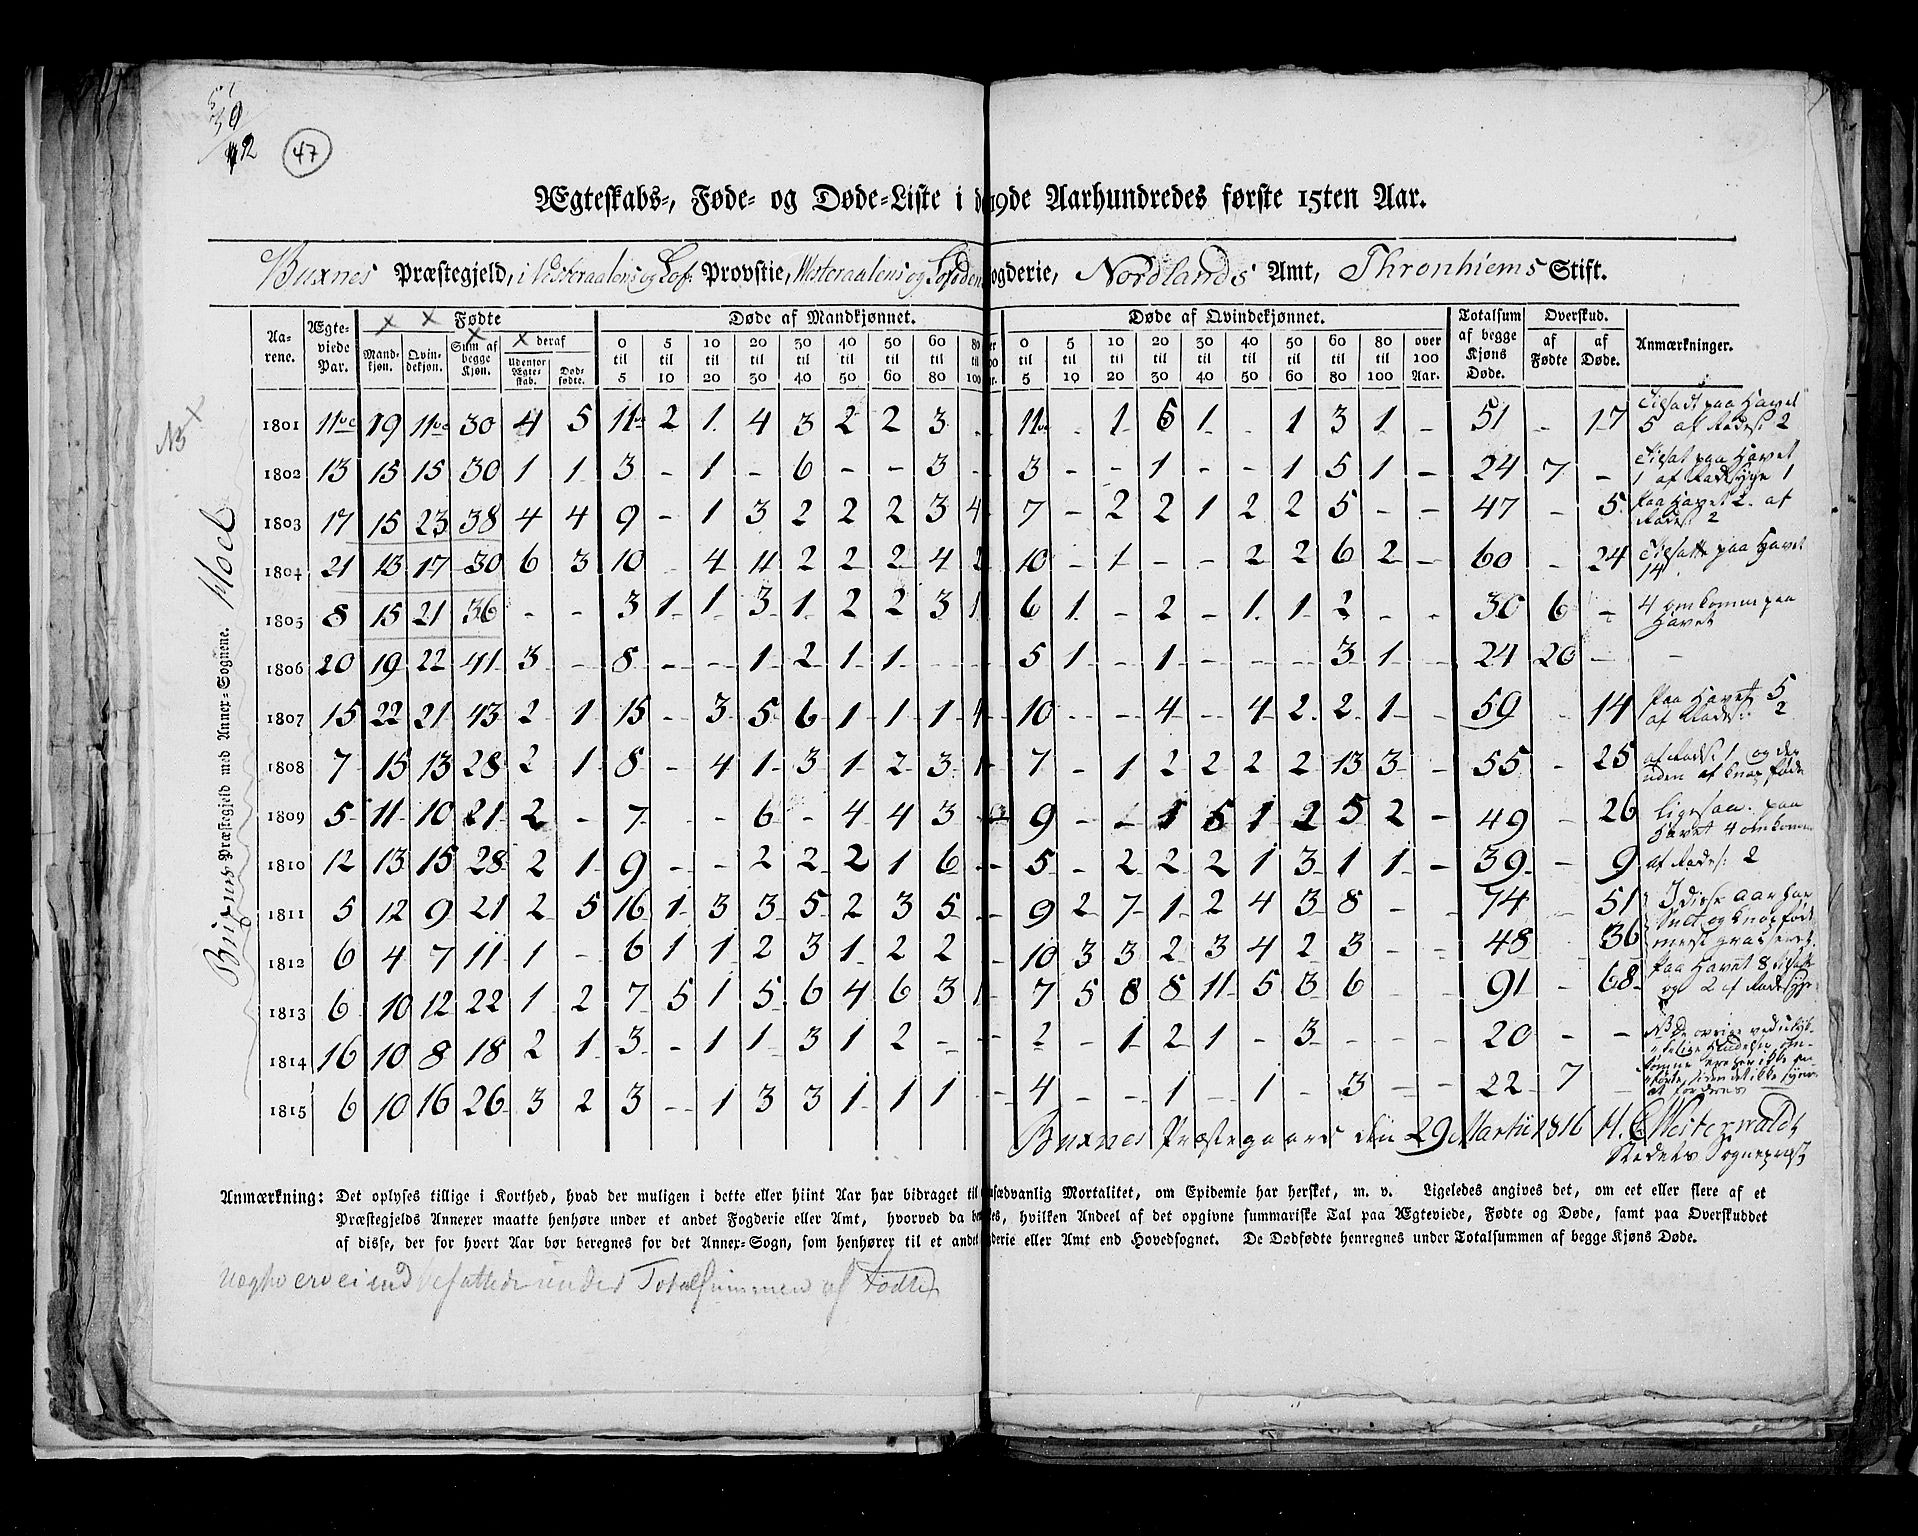 50
12
47
Ægteskabs-, Føde- og Døde-Liste i d 19de Aarhundredes første 15ten Aar.
Buxnes Præstegjeld, i Westeraalens og Lof. Provstie, Westeraalens og Lofodens ogderie, Nordlands Amt, Thronhiems Stift.
Aarene. Ægteviede Par. Fødte Døde af Mandkjønnet. Døde af Qvindekjønnet. Totalsum af begge Kjøns Døde. Overskud. Anmærkninger.
Mandkjøn. Qvindekjøn. Sum af begge Kjøn. deraf Udenfor Ægteskab. Dødfødte. 0 til 5 5 til 10 10 til 20 20 til 30 30 til 40 40 til 50 50 til 60 60 til 80 80 til 100 0 til 5 5 til 10 10 til 20 20 til 30 30 til 40 40 til 50 50 til 60 60 til 80 80 til 100 over 100 Aar. af Fødte af Døde.
1801 11ve 19 11ve 30 4 5 11ve 2 1 4 3 2 2 3 - 11ve - 1 6 1 - 1 3 1 - 51 - 17 paa Havet 5 af Rades: 2
1802 13 15 15 30 1 1 3 - 1 - 6 - - 3 - 3 - - 1 - - 1 5 1 - 24 7 - paa Havet 1 af Radesyge 1
1803 17 15 23 38 4 4 9 - 1 3 2 2 2 3 4 7 - 2 2 1 2 2 5 - - 47 - 5 Paa Havet 2. af Rades: 2
1804 21 13 17 30 6 3 10 4 11 2 2 2 4 2 10 - 1 - - 2 2 6 2 - 60 - 24 paa Havet 14
1805 8 15 21 36 - - 3 1 1 3 1 2 2 3 1 6 1 - 2 - 1 1 2 - - 30 6 - 4 omkomne paa Havet
1806 20 19 22 41 3 - 8 - - 1 2 1 1 - - 5 1 - 1 - - - 3 1 - 24 20 - -
1807 15 22 21 43 2 1 15 - 3 5 6 1 1 1 4 10 - - 4 - 4 2 2 1 - 59 - 14 Paa Havet 5 af Rades: 2
1808 7 15 13 28 2 1 8 - 4 1 3 1 2 3 1 7 - 1 2 2 2 2 13 3 - 55 - 25 af Rades: 1 og des uden af Knap Føde
1809 5 11 10 21 2 - 7 - - 6 - 4 4 3 9 - - 1 5 1 2 5 2 - 49 - 26 ligesaa. paa Havet 4 omkomne
1810 12 13 15 28 2 1 9 - - 2 2 2 1 6 - 5 - 2 2 2 1 3 1 1 - 39 - 9 af Rades: 2
1811 5 12 9 21 2 5 16 1 3 3 5 2 3 5 - 9 2 7 1 2 4 3 8 - - 74 - 51 I disse Aar har Sult og Knap føde
1812 6 4 7 11 1 - 6 1 1 2 3 1 2 2 - 10 3 3 2 3 4 2 3 - - 48 - 36 mest grasseret.
1813 6 10 12 22 1 2 7 5 1 5 6 4 6 3 1 7 5 8 8 11 5 3 6 - - 91 - 68 Paa Havet 8 og 2 af Radesyge
1814 16 10 8 18 2 1 3 - 1 1 3 1 2 - - 2 - 1 2 1 - 3 - - - 20 - - NB De øvrige ved
1815 6 10 16 26 3 2 3 - 1 3 3 1 1 1 - 4 - - 1 - 1 - 3 - - 22 7 -
Buxnes Præstegaard den 29 Martii 1816 H. C. Westerwaldt
Stedets Sognepræst
NB
Buxnes Præstegjeld med Annex-Sognene. Hoel
Anmærkning: Det oplyses tillige i Korthed, hvad der muligen i dette eller hiint Aar har bidraget til sædvanlig Mortalitet, om Epidemie har hersket, m. v. Ligeledes angives det, om eet eller flere af et
Præstegjelds Annexer maatte henhøre under et andet Fogderie eller Amt, hvorved da be es, hvilken Andeel af det opgivne summariske Tal paa Ægteviede, Fødte og Døde, samt paa Overskuddet
af disse, der for hvert Aar bør beregnes for det Annex-Sogn, som henhører til et andet derie eller Amt end Hovedsognet. De Dødfødte henregnes under Totalsummen af begge Kjøns Døde.
ere ei indbefattede under Totalsummen af Fødte